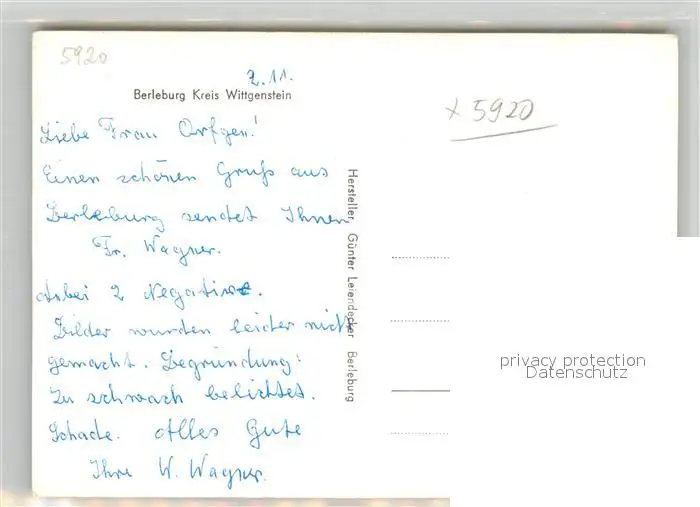 5920
2.11.
Berleburg Kreis Wittgenstein
x 5920
Liebe Frau Orfgen!
Einen schönen Gruß aus
Berleburg sendet Ihnen
Fr. Wagner.
Anbei 2 Negative.
Bilder wurden leider nicht
gemacht. Begründung:
Zu schwach belichtet.
Schade. Alles Gute
Ihre W. Wagner.
Hersteller, Günter Leiendecker Berleburg
privacy protection
Datenschutz